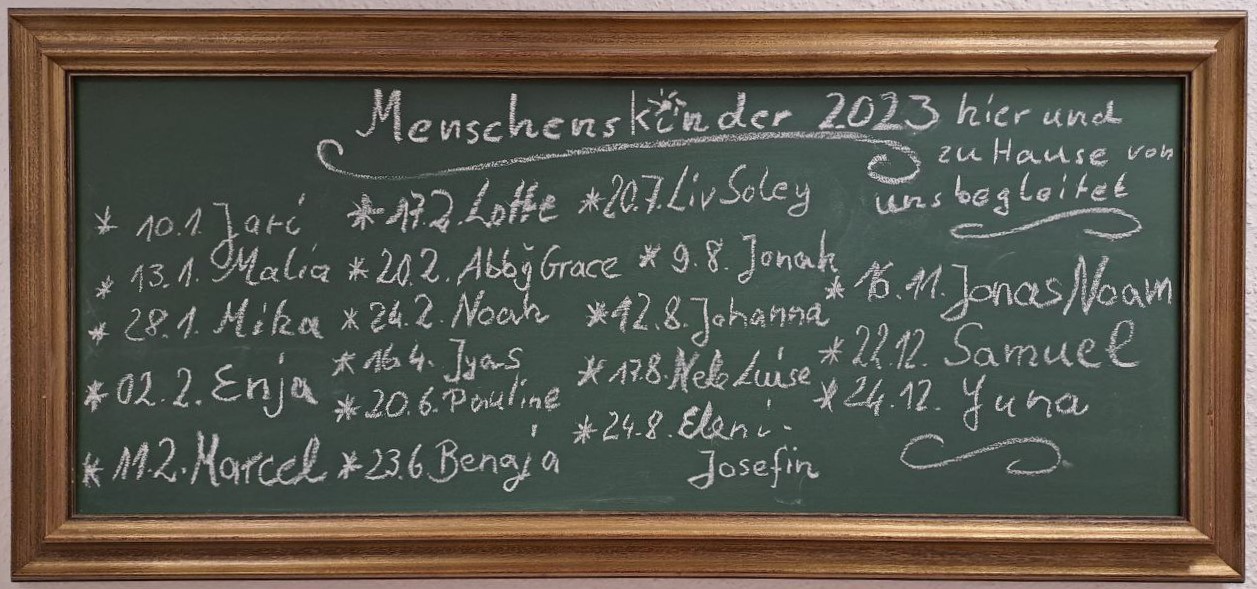 Menschenskinder 2023 hier und
zu Hause von
uns begleitet
* 10.1. Jari
* 13.1. Malia
* 28.1. Mika
* 02.2. Enja
* 11.2. Marcel
* 17.2. Lotte
* 20.2. Abby Grace
* 24.2. Noah
* 16.4. Jyas
* 20.6. Pauline
* 23.6. Benaja
* 20.7. Liv Soley
* 9.8. Jonah
* 12.8. Johanna
* 17.8. Nele Luise
* 24.8. Eleni-
Josefin
* 16.11. Jonas Noam
* 22.12. Samuel
* 24.12. Yuna